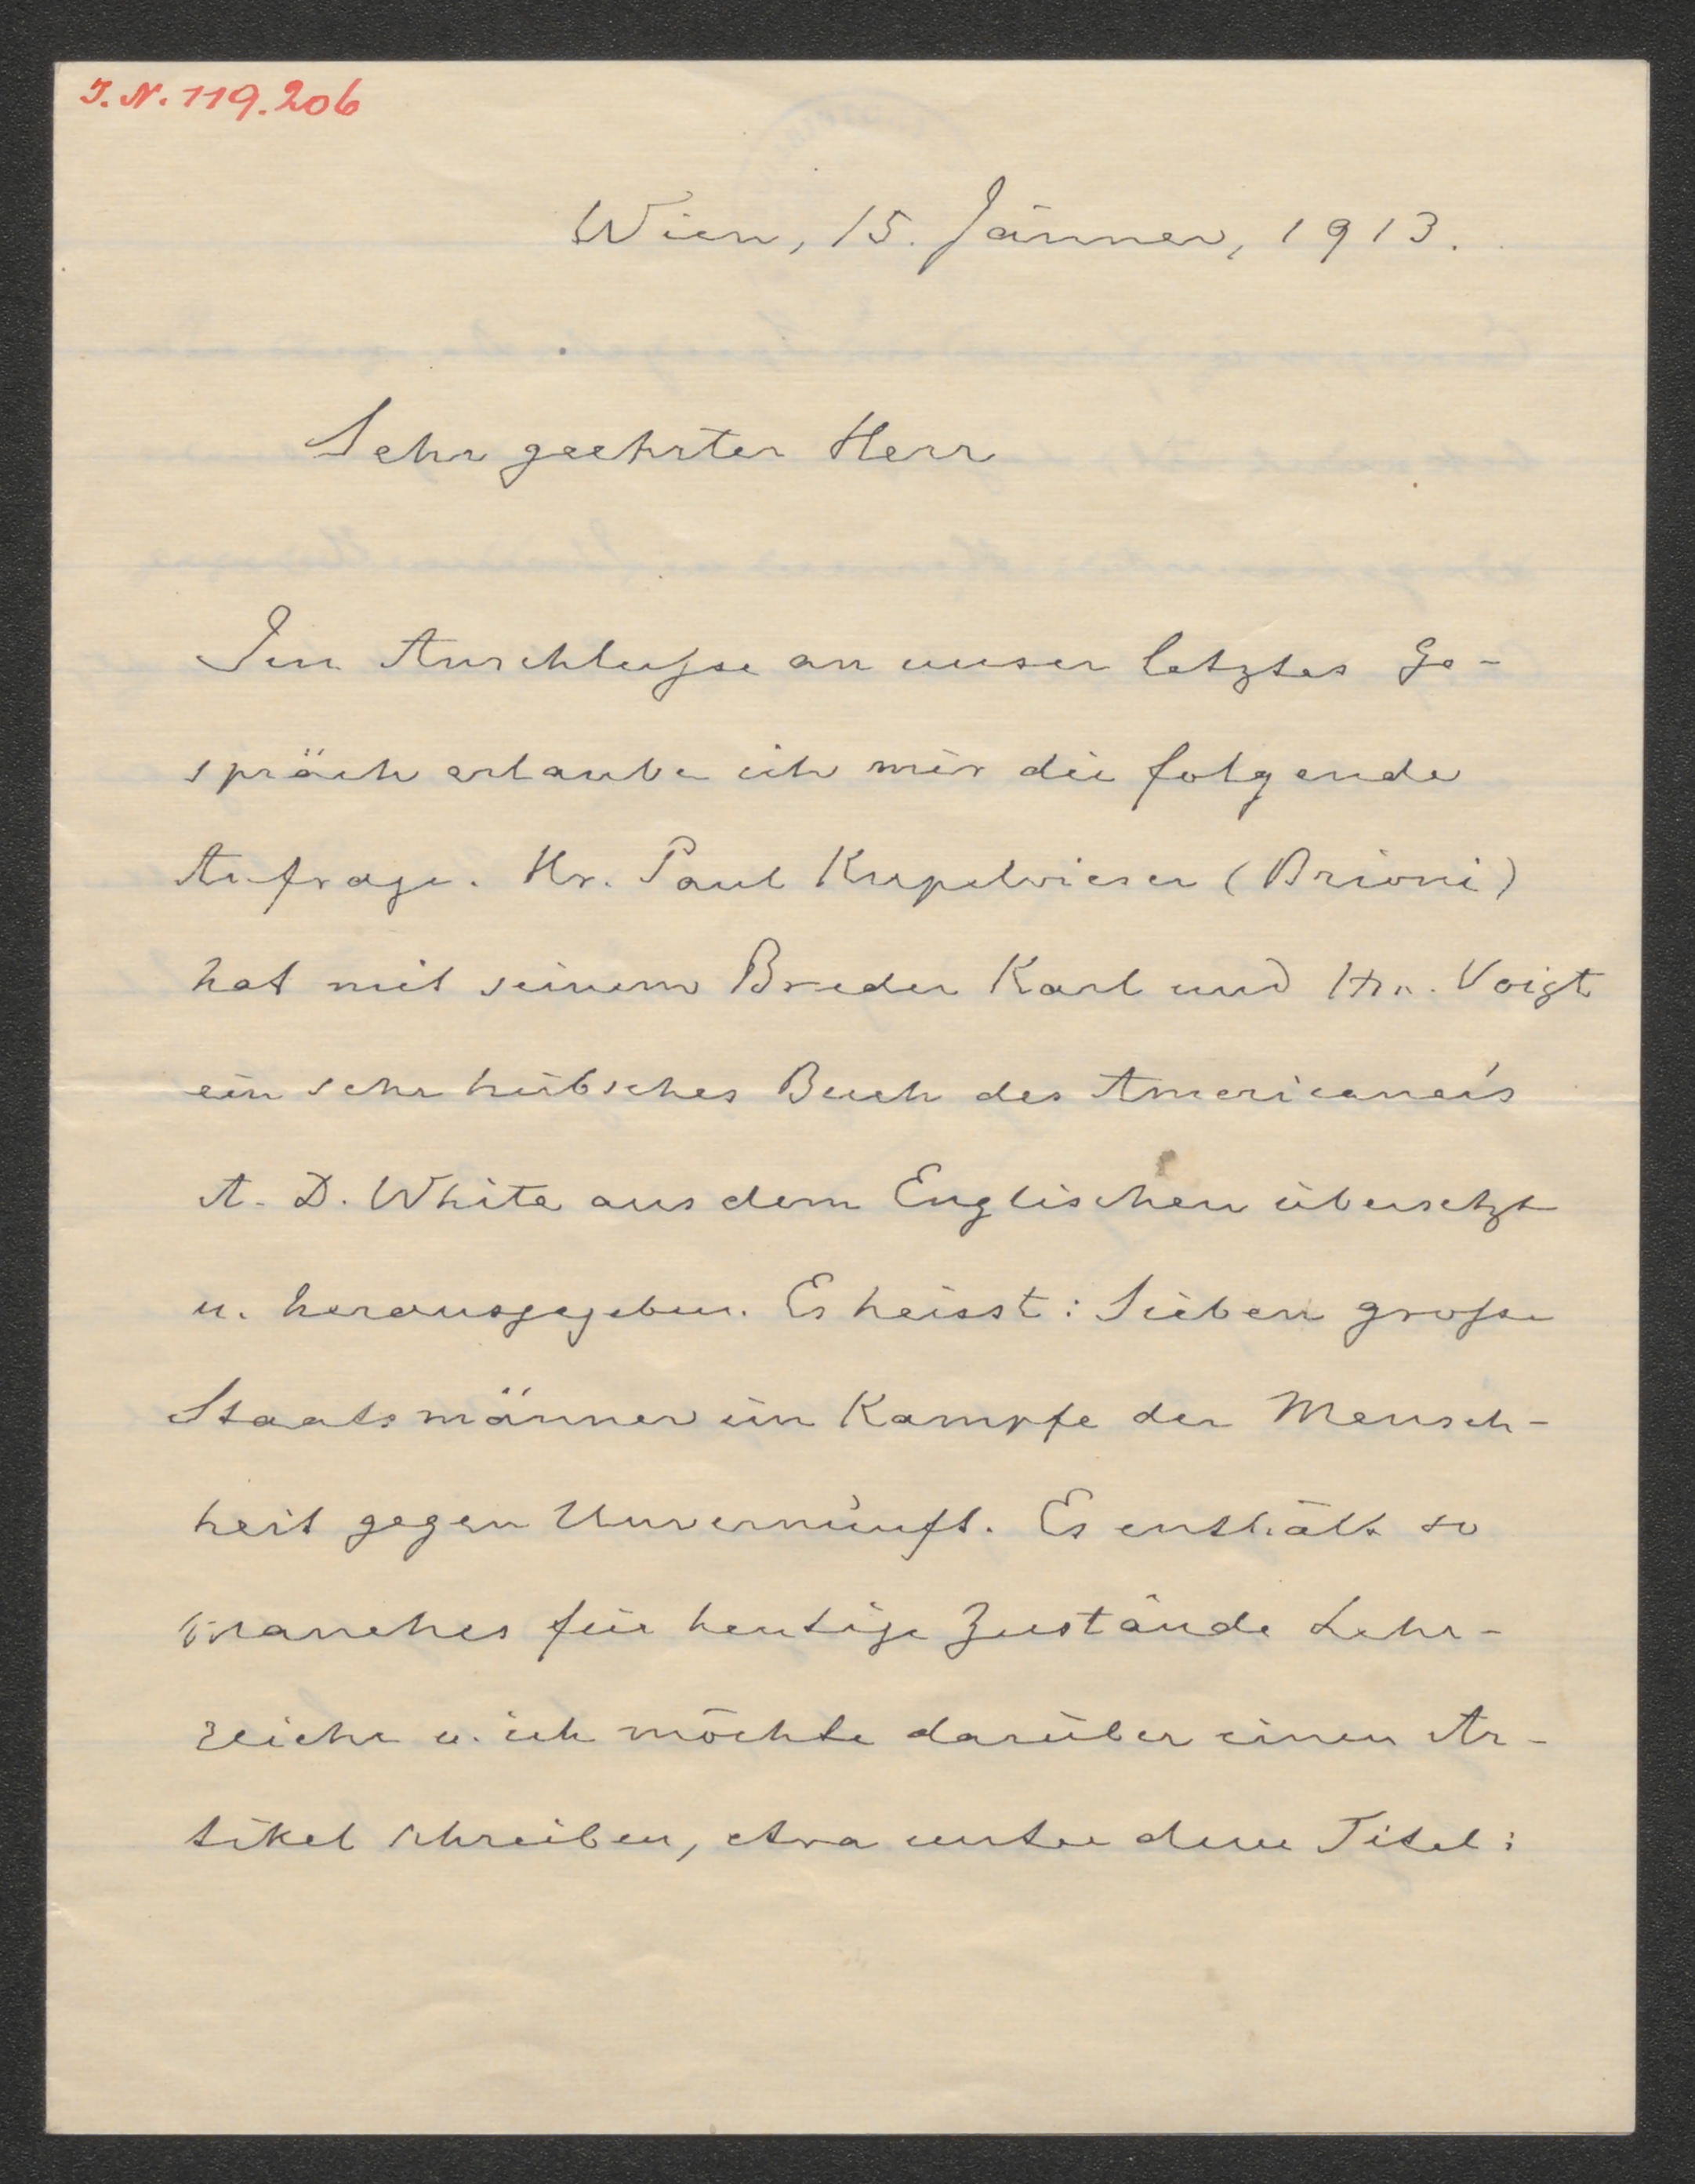 I. N. 119.206
Wien, 15. Jänner, 1913.
Sehr geehrter Herr
Im Anschlusse an unser letztes Ge-
spräch erlaube ich mir die folgende
Anfrage. Hr. Paul Kupelwieser (Brioni)
hat mit seinem Bruder Karl und Hrn. Voigt
ein sehr hübsches Buch des Americaners
A. D. White aus dem Englischen übersetzt
u. herausgegeben. Es heisst: Sieben große
Staatsmänner im Kampfe der Mensch-
heit gegen Unvernunft. Es enthält so
manches für heutige Zustände Lehr-
reiche u. ich möchte darüber einen Ar-
tikel schreiben, etwa unter dem Titel: